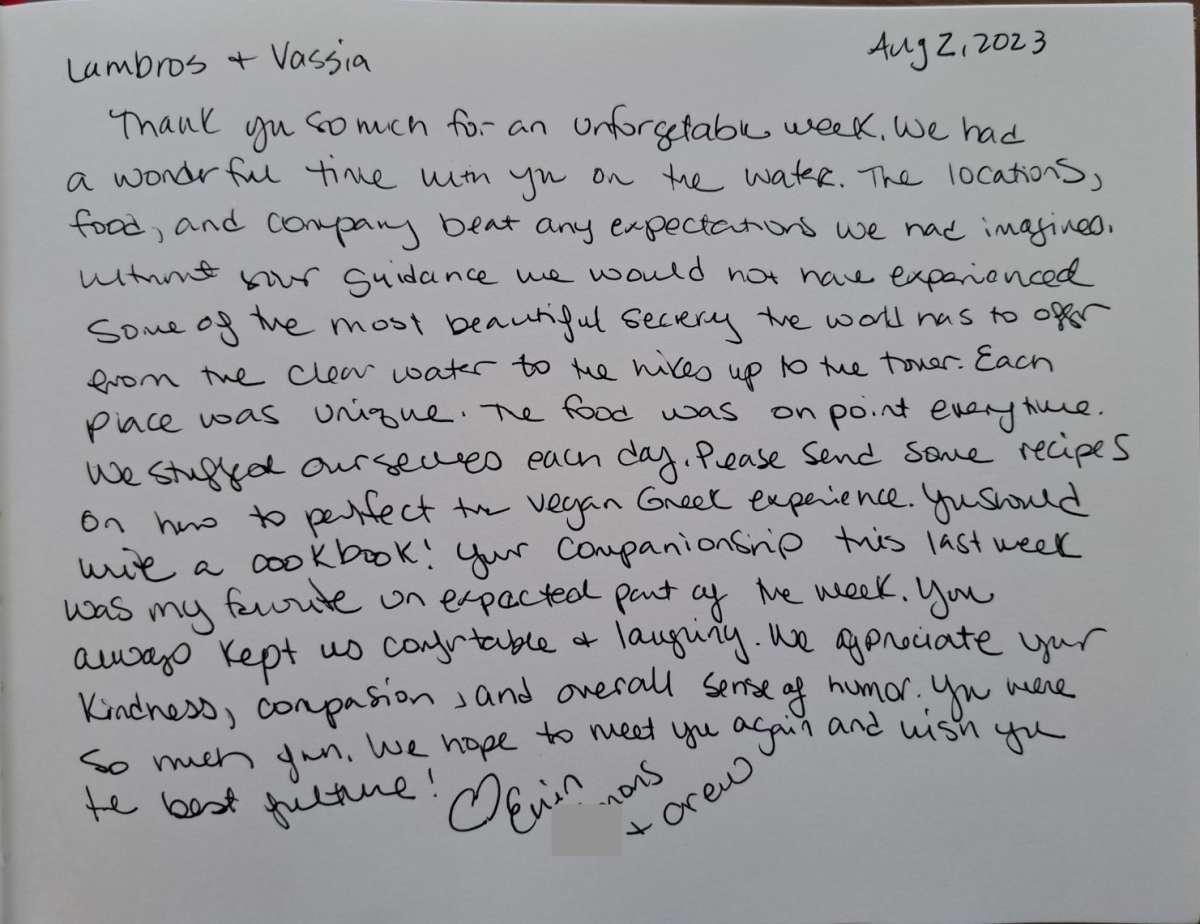 Lambros + Vassia
Aug 2, 2023
Thank you so much for an unforgetable week. We had
a wonderful time with you on the water. The locations,
food, and company beat any expectations we had imagined.
Without your guidance we would not have experienced
Some of the most beautiful secnery the world has to offer
from the clear water to the hikes up to the tower. Each
place was unique. The food was on point everytime.
We stuffed ourselves each day. Please send some recipes
on how to perfect the vegan Greek experience. You should
write a cookbook! Your companionship this last week
was my favorite unexpected part of the week. You
always kept us comfortable & laughing. We appreciate your
kindness, compasion, and overall sense of humor. You were
so much fun. We hope to meet you again and wish you
the best future! ♡ Erin
+ crew